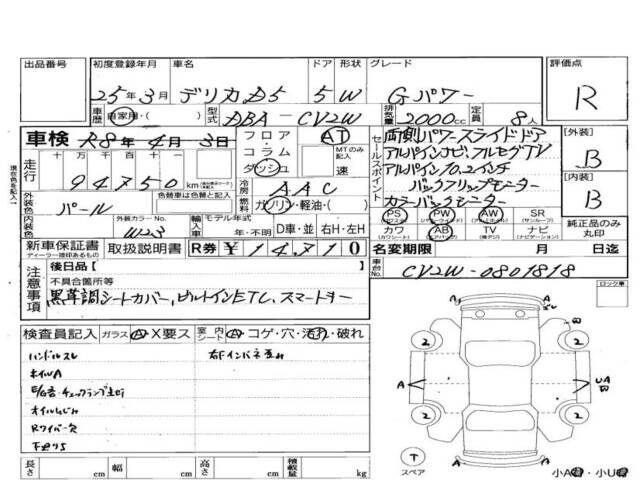 出品番号 初度登録年月 車名 ドア 形状 グレード 評価点
25年3月 デリカD5 5 W Gパワー R
車歴 自家用・( ) 型式 DBA-CV2W 排気量 2000cc 定員 8人
車検 R8年4月3日 フロア コラム ダッシュ AT MTのみ記入 速
セールスポイント
両側パワースライドドア
アルパインナビ、フルセグTV
アルパイン10.2インチ
バックフリップモニター
カラーバックモニター
[外装] B
[内装] B
走行 十万 万 千 百 十 一
94750 km
冷房 AAC
外装色 パール 色替車は色替と記入 燃料 ガソリン・軽油・( )
内装色 外装カラーNo. W23 輸入車 モデル年式 年・不明 D車・並 右H・左H
PS PW AW SR (サンルーフ)
カワ AB (エアバッグ) TV ナビ (ナビゲーション)
純正品のみ丸印
新車保証書 取扱説明書 R券 ¥14310
名変期限 月 日迄
車台No. CV2W-0801818
注意事項 後日品[ ]
不具合箇所等
黒革調シートカバー、ビルトインETC、スマートキー
ロック車
検査員記入 ガラス A・X要ス 室内 シート A・コゲ・穴・汚れ・破れ
ハンドルスレ
ホイルA
E/G音・チェックランプ点灯
オイルにじみ
Rワイパー欠
下回りS
2 2
A A A UA
2 2
A A
T
スペア
小A ・小U
長さ cm 幅 cm 高さ cm 積載量 kg